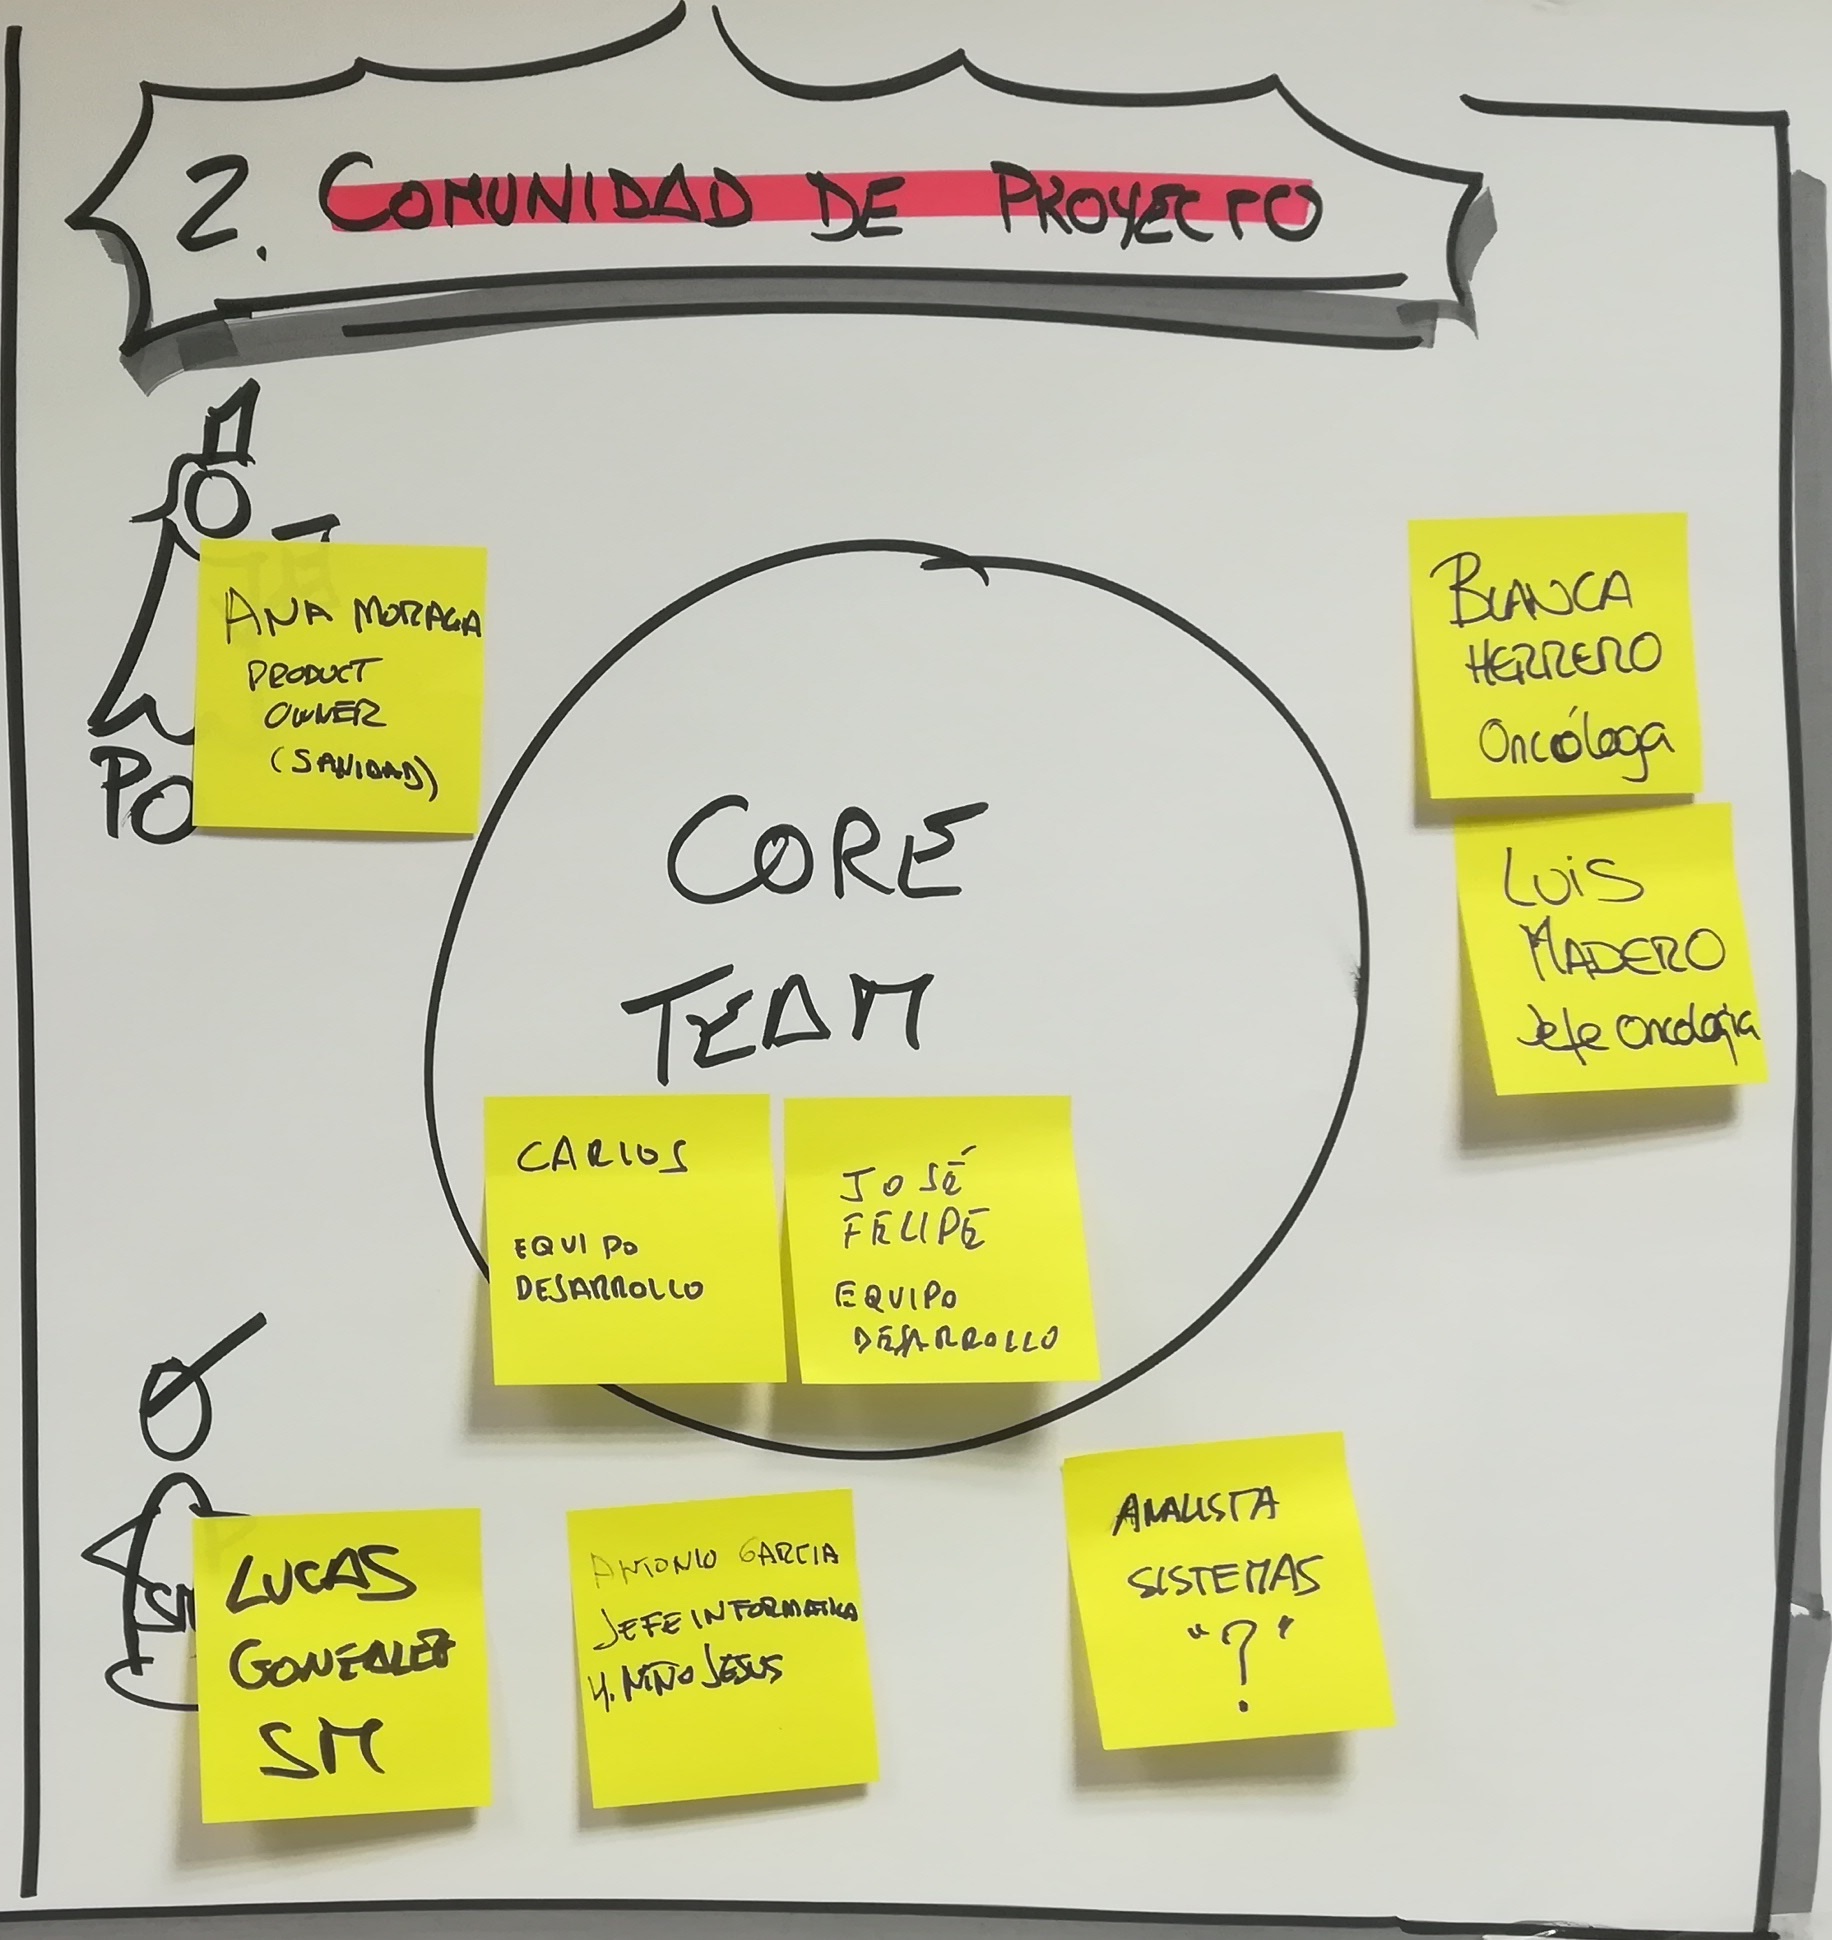 2. COMUNIDAD DE PROYECTO
ANA MORAGA
PRODUCT
OWNER
(SANIDAD)
PO
BLANCA
HERRERO
Oncóloga
LUIS
MADERO
Jefe Oncología
CORE
TEAM
CARLOS
EQUIPO
DESARROLLO
JOSÉ
FELIPE
EQUIPO
DESARROLLO
SM
LUCAS
GONZALEZ
SM
ANTONIO GARCIA
JEFE INFORMATICA
H. NIÑO JESUS
ANALISTA
SISTEMAS
"?"